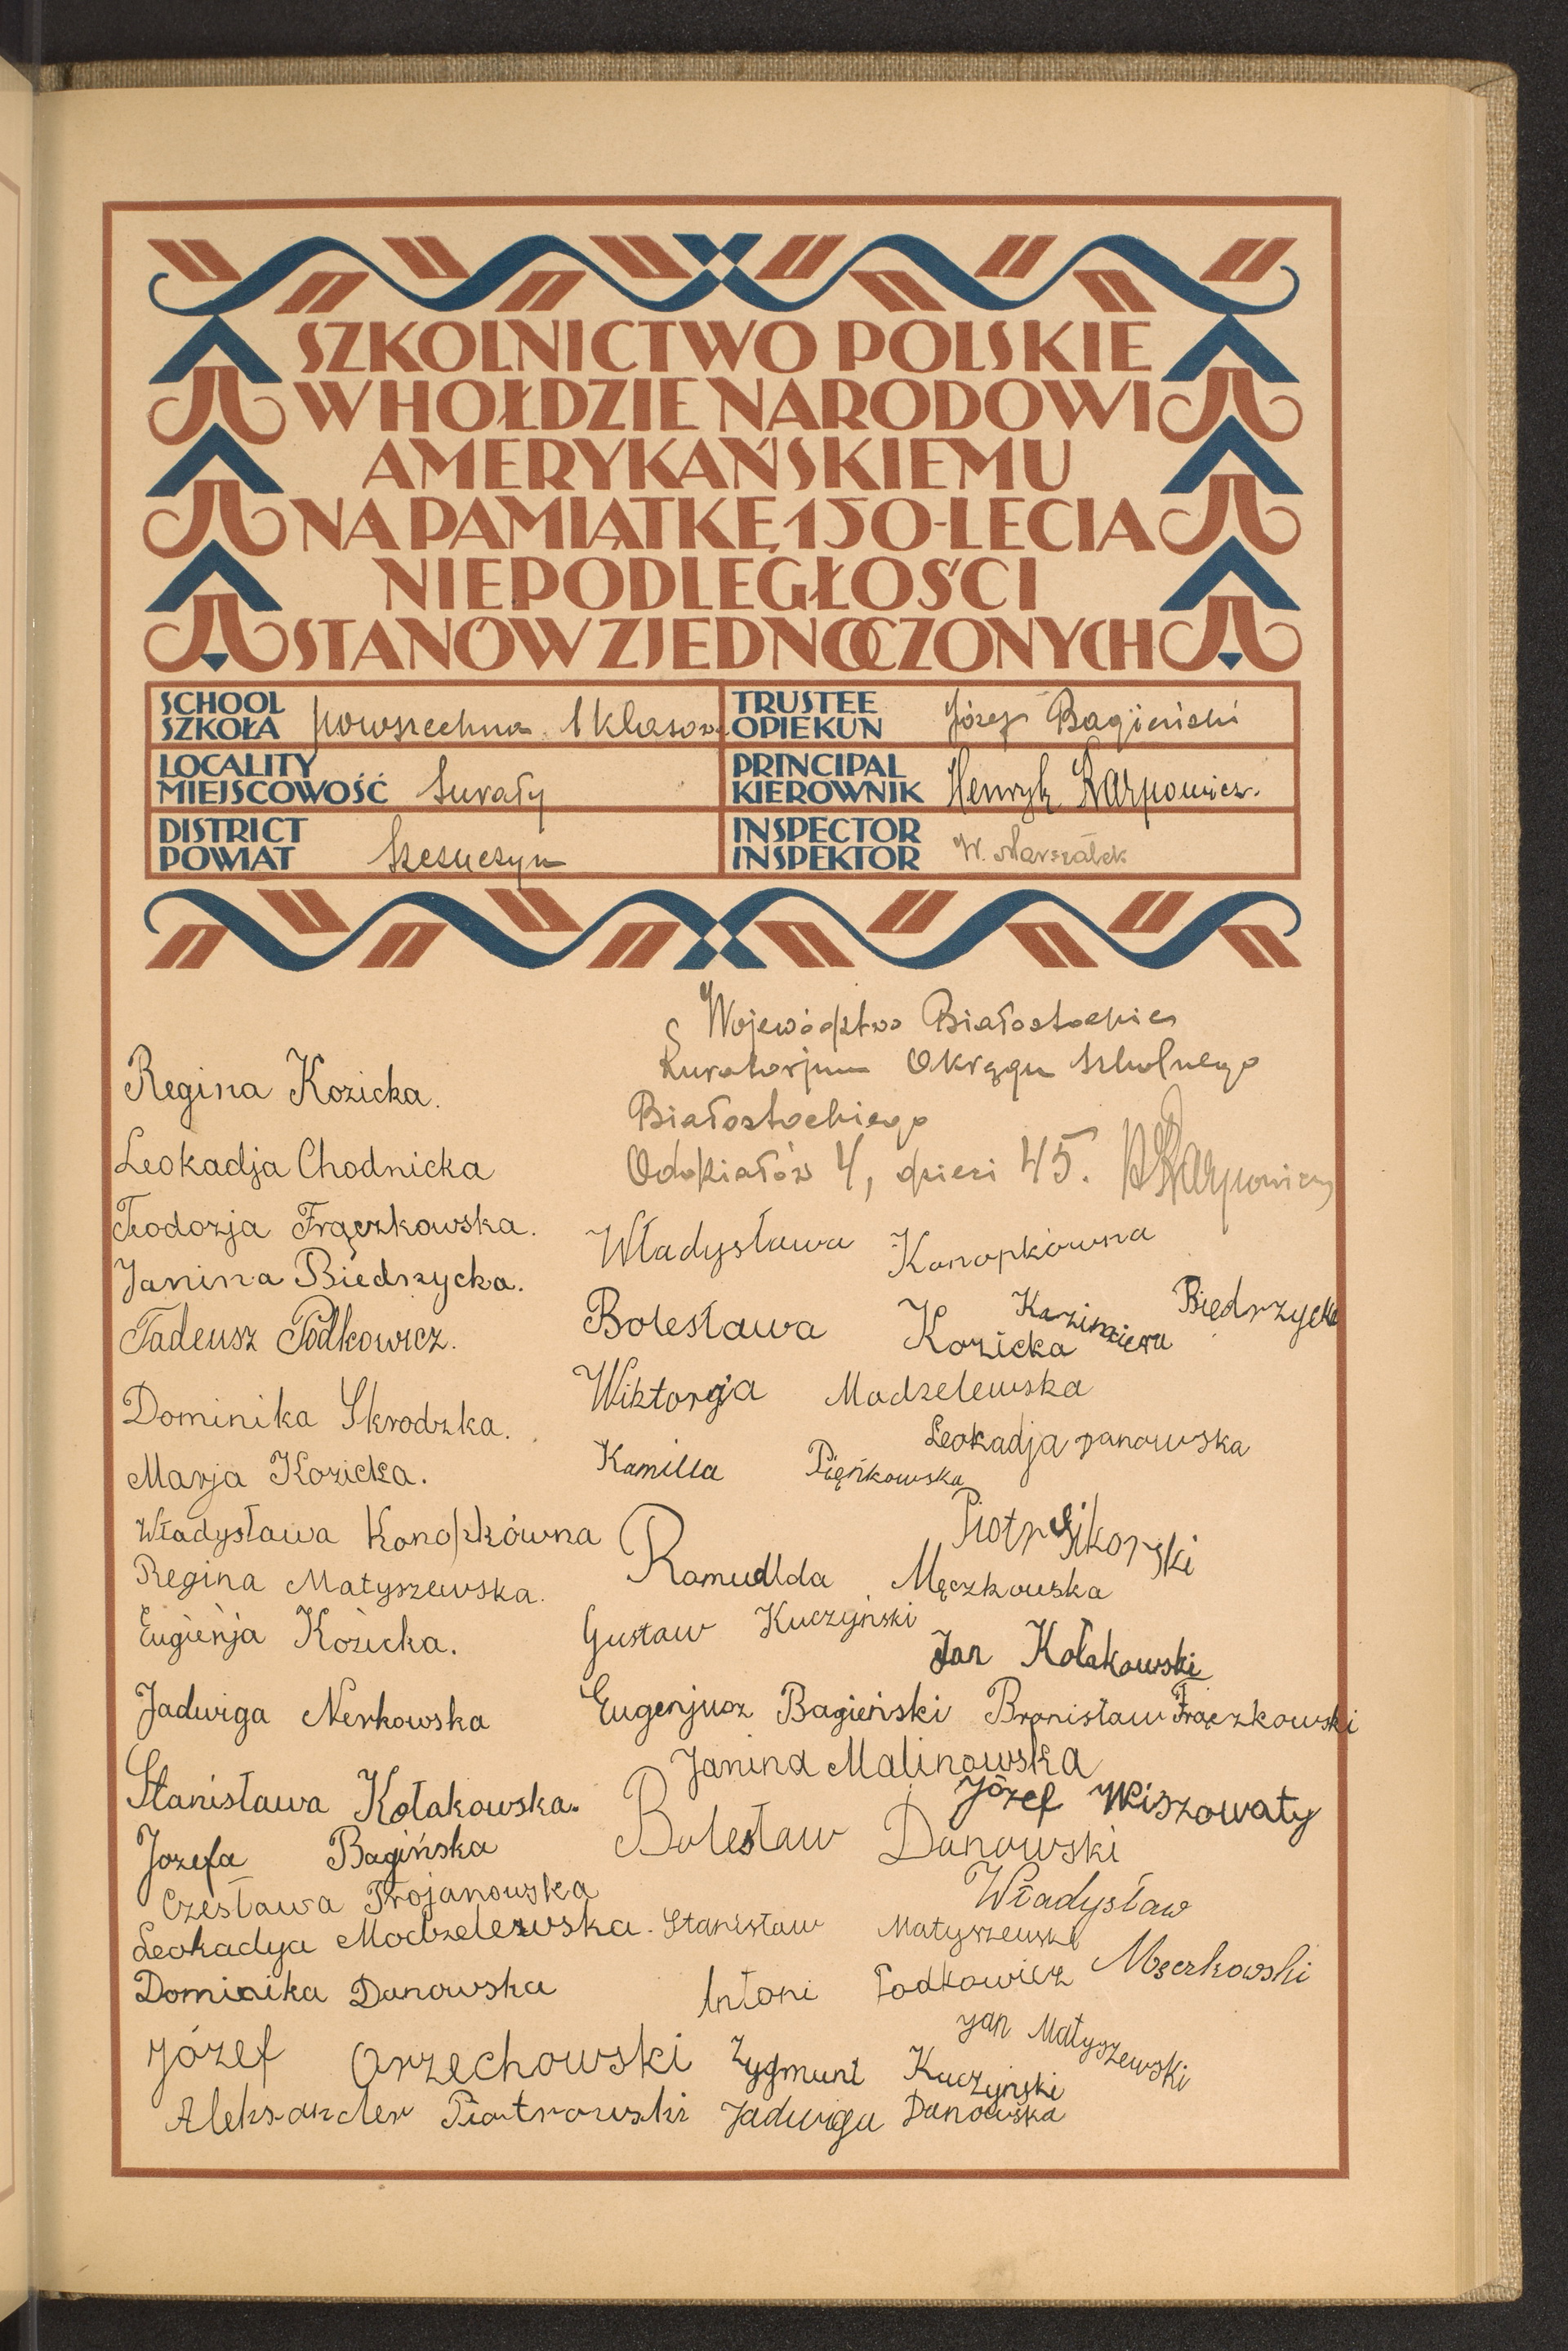 SZKOLNICTWO POLSKIE
W HOŁDZIE NARODOWI
AMERYKAŃSKIEMU
NA PAMIĄTKĘ 150-LECIA
NIEPODLEGŁOŚCI
STANÓW ZJEDNOCZONYCH
SCHOOL
SZKOŁA powszechna 1 klasowa
TRUSTEE
OPIEKUN Józef Bagieński
LOCALITY
MIEJSCOWOŚĆ Surały
PRINCIPAL
KIEROWNIK Henryk Karpowicz.
DISTRICT
POWIAT Szczuczyn
INSPECTOR
INSPEKTOR W. Marszałek
Województwo Białostockie
Kuratorjum Okręgu Szkolnego
Białostockiego
Oddziałów 4, dzieci 45. HKarpowicz
Regina Kozicka.
Leokadja Chodnicka
Teodozja Frączkowska.
Janina Biedrzycka.
Tadeusz Podkowicz.
Dominika Skrodzka.
Marja Kozicka.
Władysława Konopkówna
Regina Matyszewska.
Eugienja Kozicka.
Jadwiga Nerkowska
Stanisława Kołakowska.
Jozefa Bagińska
Czesława Trojanowska
Leokadya Modzelewska.
Dominika Danowska
Józef Orzechowski
Aleksander Piotrowski
Władysława Konopkówna
Bolesława Kozicka
Kazimiera Biedrzycka
Wiktorja Modzelewska
Leokadja Danowska
Kamilla Pieńkowska
Piotr Sikorski
Romudlda Męczkowska
Gustaw Kuczyński
Jan Kołakowski
Eugenjusz Bagieński Bronisław Frączkowski
Janina Malinowska
Józef Wiszowaty
Bolesław Danowski
Władysław Męczkowski
Stanisław Matyszewski
Antoni Podkowicz
Jan Matyszewski
Zygmunt Kuczyński
Jadwiga Danowska